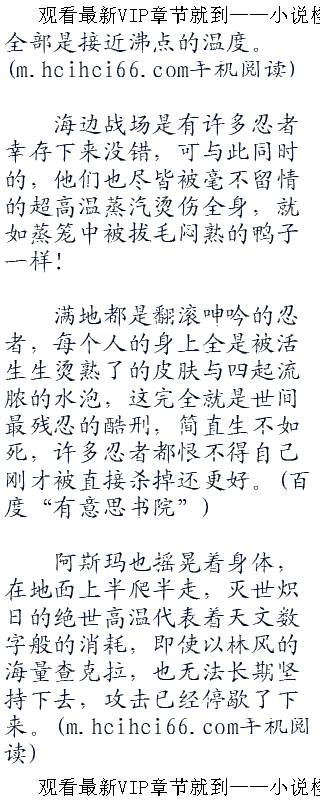 观看最新VIP章节就到——小说检
全部是接近沸点的温度。
(m.hcihci66.com手机阅读)
海边战场是有许多忍者
幸存下来没错，可与此同时
的，他们也尽皆被毫不留情
的超高温蒸汽烫伤全身，就
如蒸笼中被拔毛闷熟的鸭子
一样！
满地都是翻滚呻吟的忍
者，每个人的身上全是被活
生生烫熟了的皮肤与四起流
脓的水泡，这完全就是世间
最残忍的酷刑，简直生不如
死，许多忍者都恨不得自己
刚才被直接杀掉还更好。(百
度“有意思书院”)
阿斯玛也摇晃着身体，
在地面上半爬半走，灭世炽
日的绝世高温代表着天文数
字般的消耗，即使以林风的
海量查克拉，也无法长期坚
持下去，攻击已经停歇了下
来。(m.hcihci66.com手机阅
读)
观看最新VIP章节就到——小说检